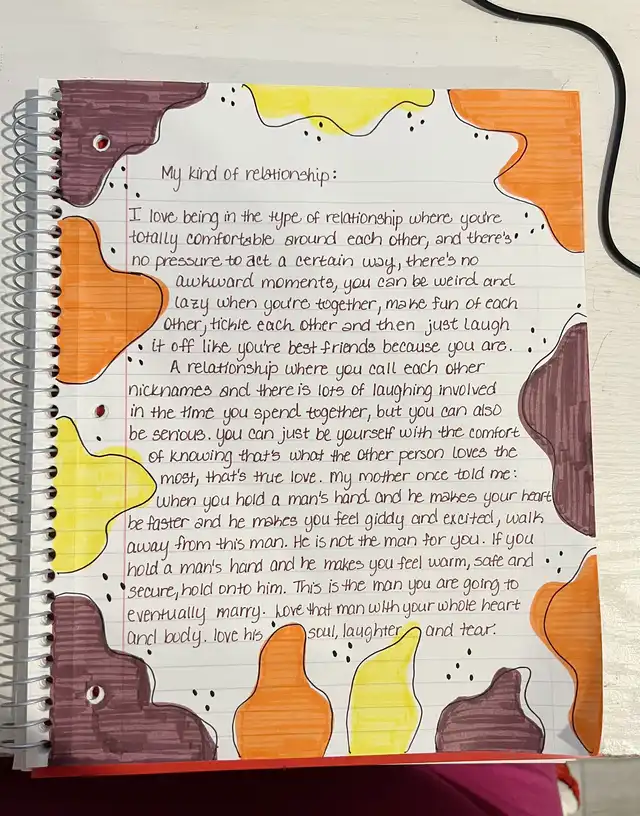 My kind of relationship:
I love being in the type of relationship where you're
totally comfortable around each other, and there's
no pressure to act a certain way, there's no
awkward moments, you can be weird and
lazy when you're together, make fun of each
other, tickle each other and then just laugh
it off like you're best friends because you are.
A relationship where you call each other
nicknames and there is lots of laughing involved
in the time you spend together, but you can also
be serious. you can just be yourself with the comfort
of knowing that's what the other person loves the
most, that's true love. My mother once told me:
when you hold a man's hand and he makes your heart
be faster and he makes you feel giddy and excited, walk
away from this man. He is not the man for you. If you
hold a man's hand and he makes you feel warm, safe and
secure, hold onto him. This is the man you are going to
eventually marry. Love that man with your whole heart
and body. love his soul, laughter and tear.